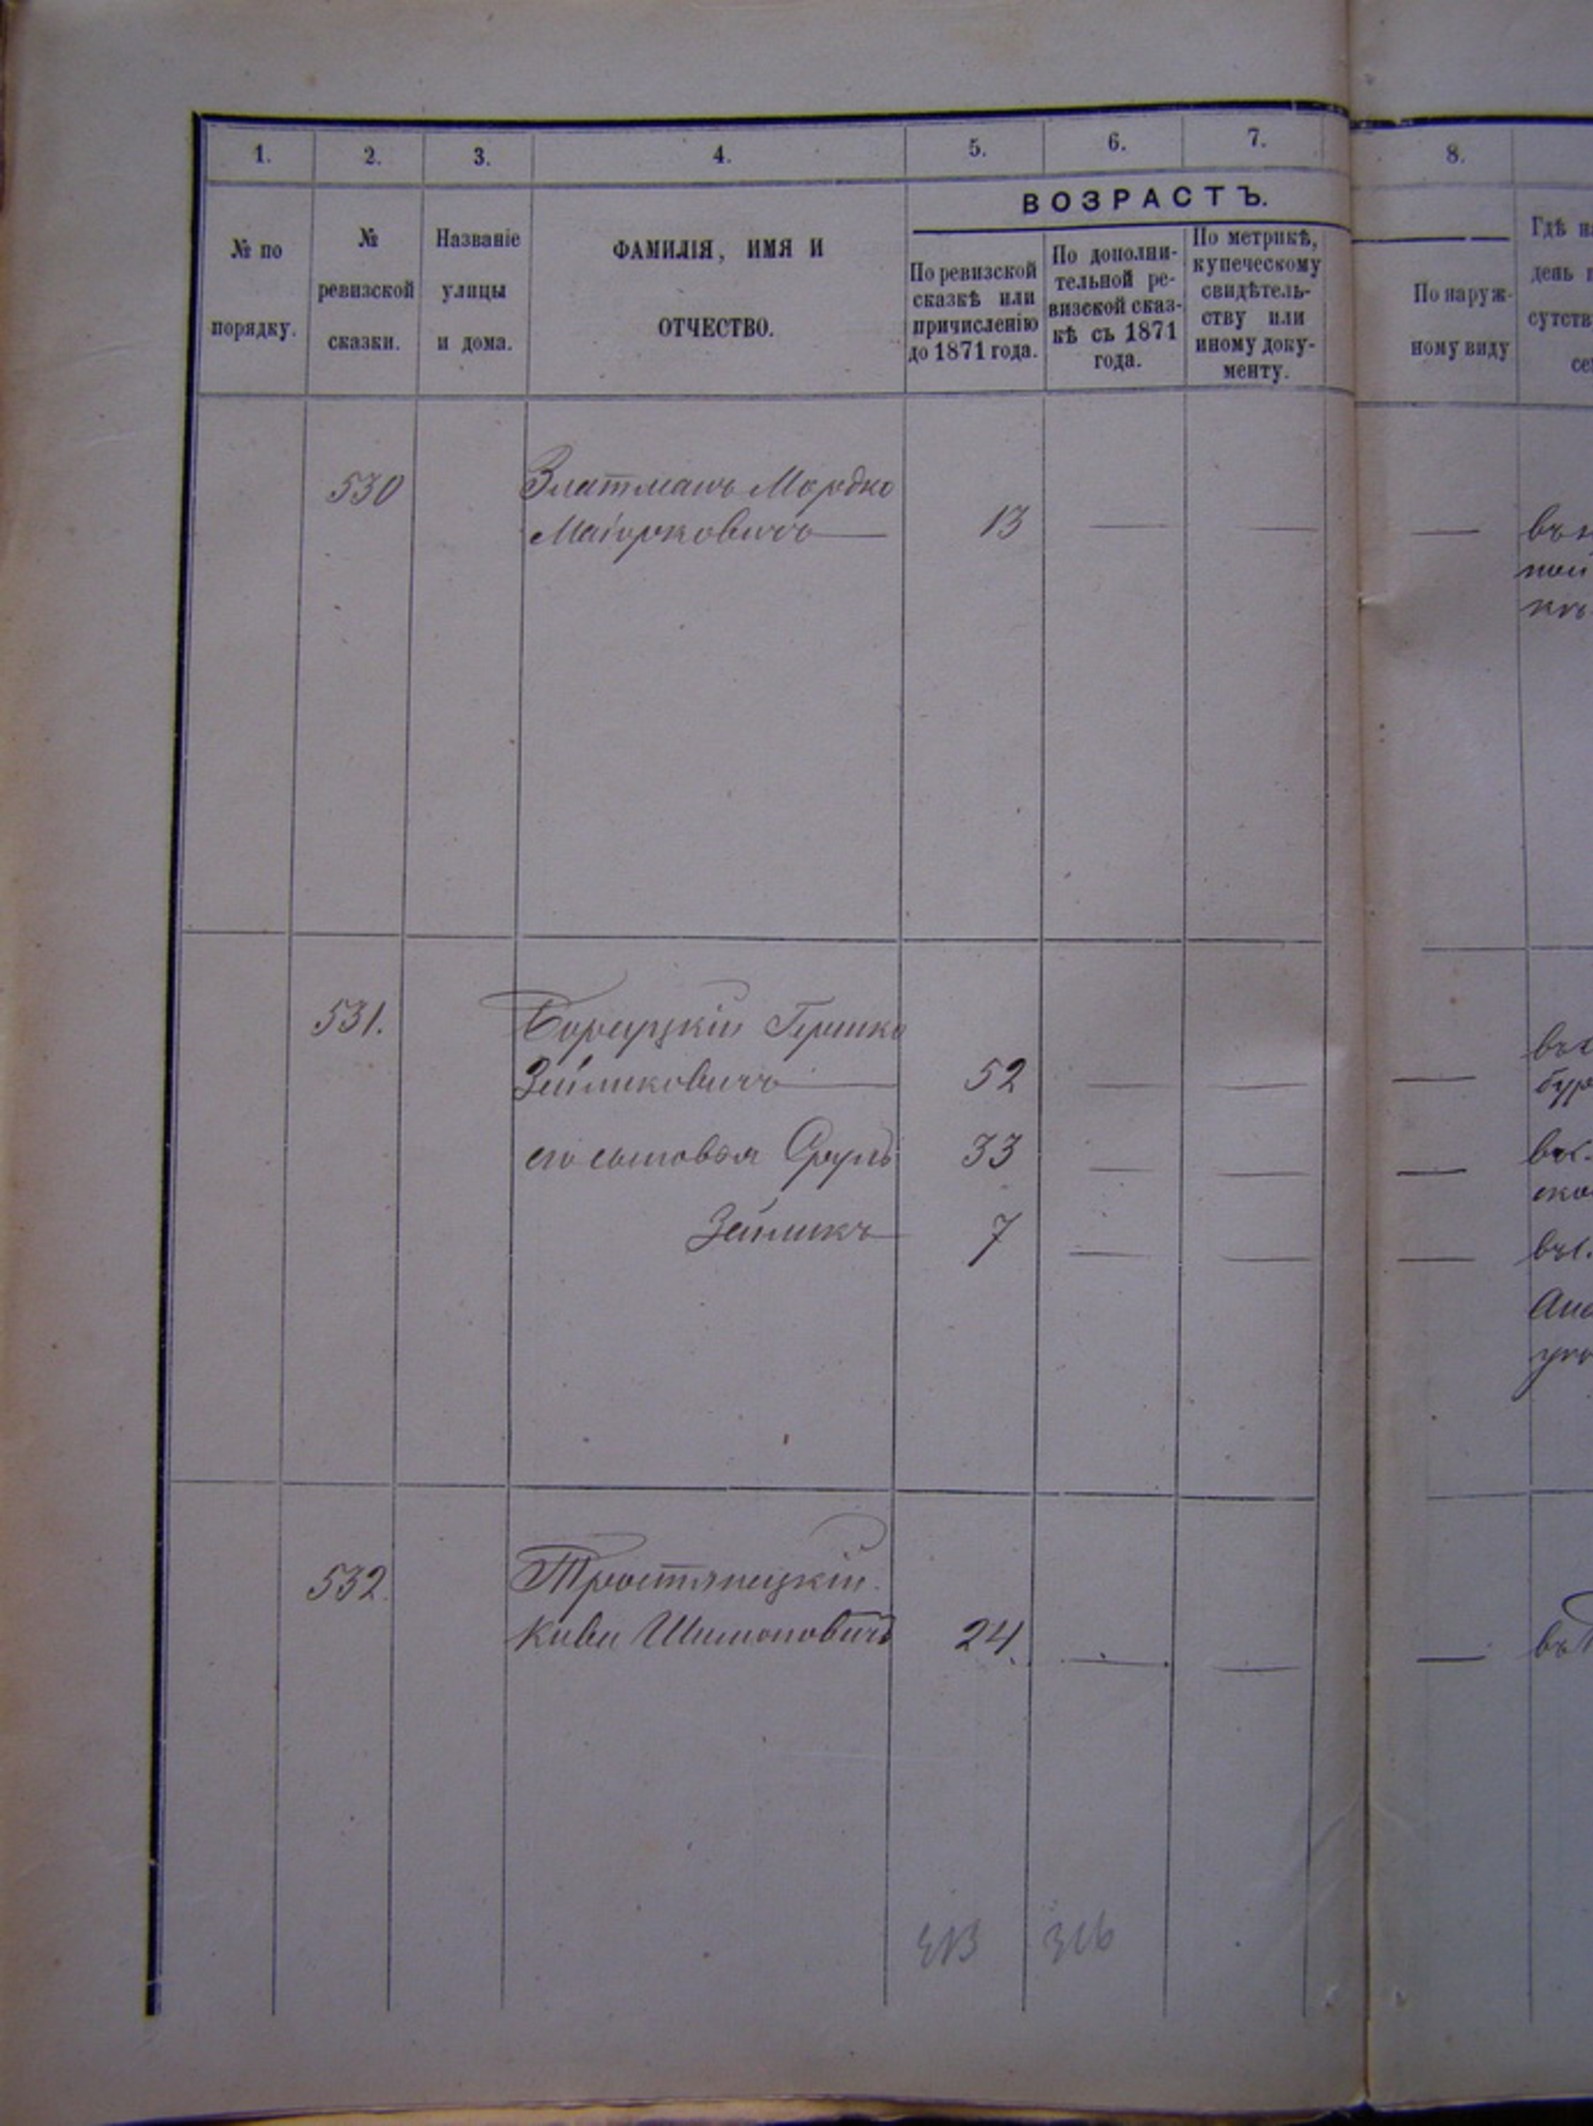 1. 2. 3. 4. 5. 6. 7. 8.
ВОЗРАСТЪ.
№ по
порядку.
№
ревизской
сказки.
Названіе
улицы
и дома.
ФАМИЛІЯ, ИМЯ И
ОТЧЕСТВО.
По ревизской
сказкѣ или
причисленію
до 1871 года.
По дополни-
тельной ре-
визской сказ-
кѣ съ 1871
года.
По метрикѣ,
купеческому
свидѣтель-
ству или
иному доку-
менту.
По наруж-
ному виду
Гдѣ
день
сутств
530 Златманъ Мордко
13
531.
Гершко
Зейликовичъ 52
его сыновья Сруль 33
Зейликъ 7
532. Тростянецкій
Киви Шимоновичъ 24.